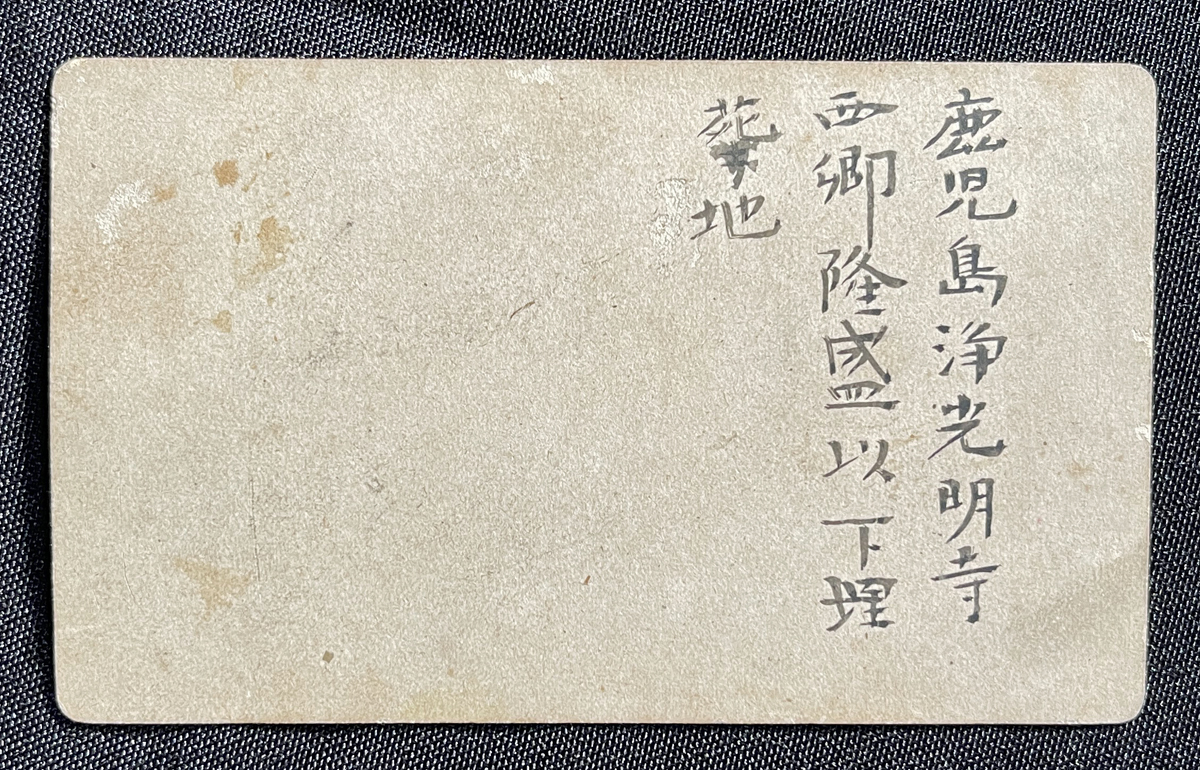 鹿児島浄光明寺
西郷隆盛以下埋
葬地